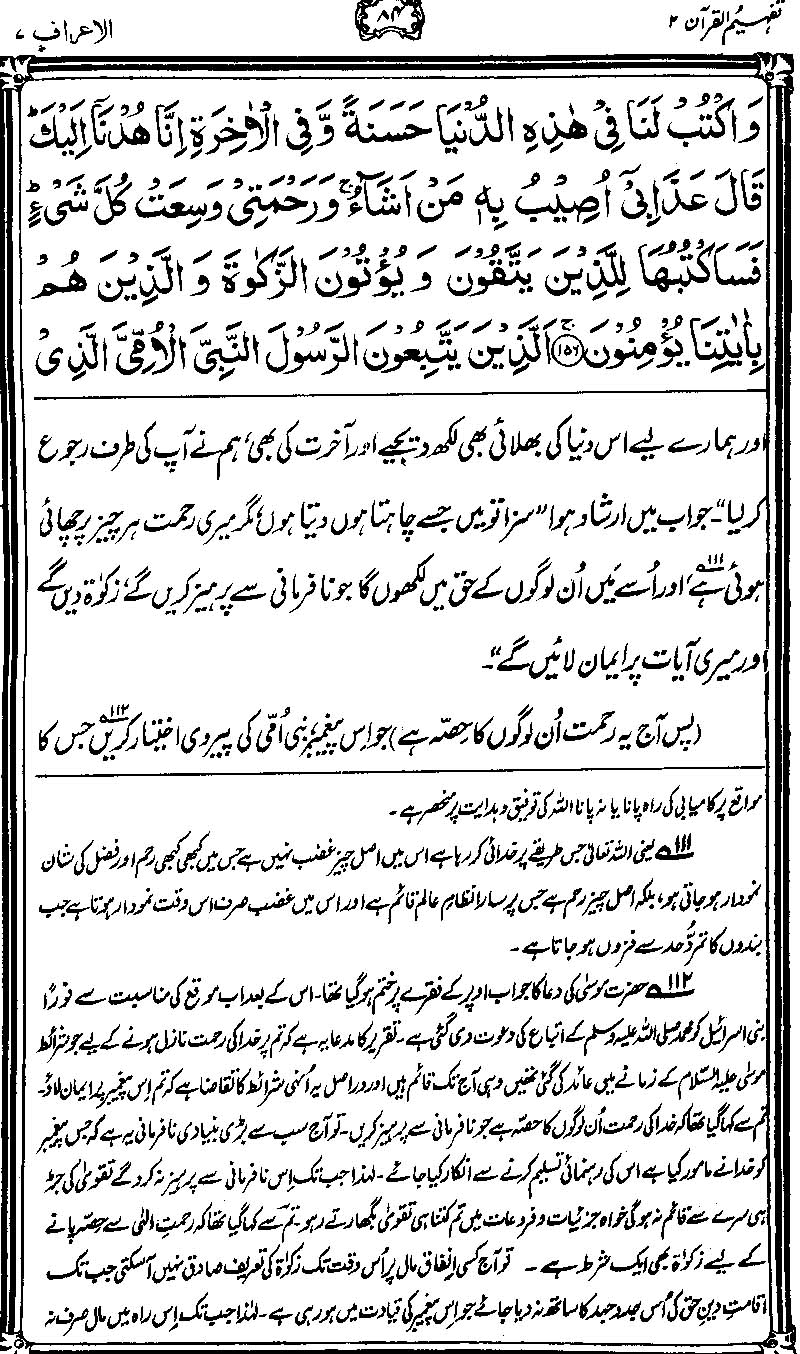 تفہیم القرآن ۲
۸۴
الاعراف ۷
وَ اكْتُبْ لَنَا فِیْ هٰذِهِ الدُّنْیَا حَسَنَةً وَّ فِی الْاٰخِرَةِ اِنَّا هُدْنَاۤ اِلَیْكَؕ
قَالَ عَذَابِیْۤ اُصِیْبُ بِهٖ مَنْ اَشَآءُۚ وَ رَحْمَتِیْ وَسِعَتْ كُلَّ شَیْءٍؕ
فَسَاَكْتُبُهَا لِلَّذِیْنَ یَتَّقُوْنَ وَ یُؤْتُوْنَ الزَّكٰوةَ وَ الَّذِیْنَ هُمْ
بِاٰیٰتِنَا یُؤْمِنُوْنَۚ ﴿۱۵۶﴾ اَلَّذِیْنَ یَتَّبِعُوْنَ الرَّسُوْلَ النَّبِیَّ الْاُمِّیَّ الَّذِیْ
اور ہمارے لیے اس دنیا کی بھلائی بھی لکھ دیجیے اور آخرت کی بھی، ہم نے آپ کی طرف رجوع
کر لیا“۔ جواب میں ارشاد ہوا ”سزا تو میں جسے چاہتا ہوں دیتا ہوں، مگر میری رحمت ہر چیز پر چھائی
ہوئی ہے۱۱۱، اور اُسے میں اُن لوگوں کے حق میں لکھوں گا جو نافرمانی سے پرہیز کریں گے، زکوٰۃ دیں گے
اور میری آیات پر ایمان لائیں گے“۔
(پس آج یہ رحمت اُن لوگوں کا حصّہ ہے) جو اِس پیغمبر، نبی اُمّی کی پیروی اختیار کریں۱۱۲ جس کا
مواقع پر کامیابی کی راہ پانا یا نہ پانا اللہ کی توفیق و ہدایت پر منحصر ہے۔
۱۱۱ یعنی اللہ تعالیٰ جس طریقے پر خدائی کر رہا ہے اس میں اصل چیز غضب نہیں ہے جس میں کبھی کبھی رحم اور فضل کی شان
نمودار ہو جاتی ہو، بلکہ اصل چیز رحم ہے جس پر سارا نظامِ عالم قائم ہے اور اس میں غضب صرف اس وقت نمودار ہوتا ہے جب
بندوں کا تمرُّد حد سے فزوں ہو جاتا ہے۔
۱۱۲ حضرت موسیٰ کی دعا کا جواب اوپر کے فقرے پر ختم ہو گیا تھا۔ اس کے بعد اب موقع کی مناسبت سے فورًا
بنی اسرائیل کو محمد صلی اللہ علیہ وسلم کے اتباع کی دعوت دی گئی ہے۔ تقریر کا مدعا یہ ہے کہ تم پر خدا کی رحمت نازل ہونے کے لیے جو شرائط
موسیٰ علیہ السّلام کے زمانے میں عائد کی گئی تھیں وہی آج تک قائم ہیں اور دراصل یہ اُنہی شرائط کا تقاضا ہے کہ تم اِس پیغمبر پر ایمان لاؤ۔
تم سے کہا گیا تھا کہ خدا کی رحمت اُن لوگوں کا حصّہ ہے جو نافرمانی سے پرہیز کریں۔ تو آج سب سے بڑی بنیادی نافرمانی یہ ہے کہ جس پیغمبر
کو خدا نے مامور کیا ہے اس کی رہنمائی تسلیم کرنے سے انکار کیا جائے۔ لہٰذا جب تک اِس نافرمانی سے پرہیز نہ کرو گے تقویٰ کی جڑ
ہی سرے سے قائم نہ ہوگی خواہ جزئیات و فروعات میں تم کتنا ہی تقویٰ بگھارتے رہو۔ تم سے کہا گیا تھا کہ رحمتِ الٰہی سے حصّہ پانے
کے لیے زکوٰۃ بھی ایک شرط ہے۔ تو آج کسی انفاقِ مال پر اُس وقت تک زکوٰۃ کی تعریف صادق نہیں آسکتی جب تک
اقامتِ دینِ حق کی اُس جدوجہد کا ساتھ نہ دیا جائے جو اِس پیغمبر کی قیادت میں ہو رہی ہے۔ لہٰذا جب تک اِس راہ میں مال صرف نہ